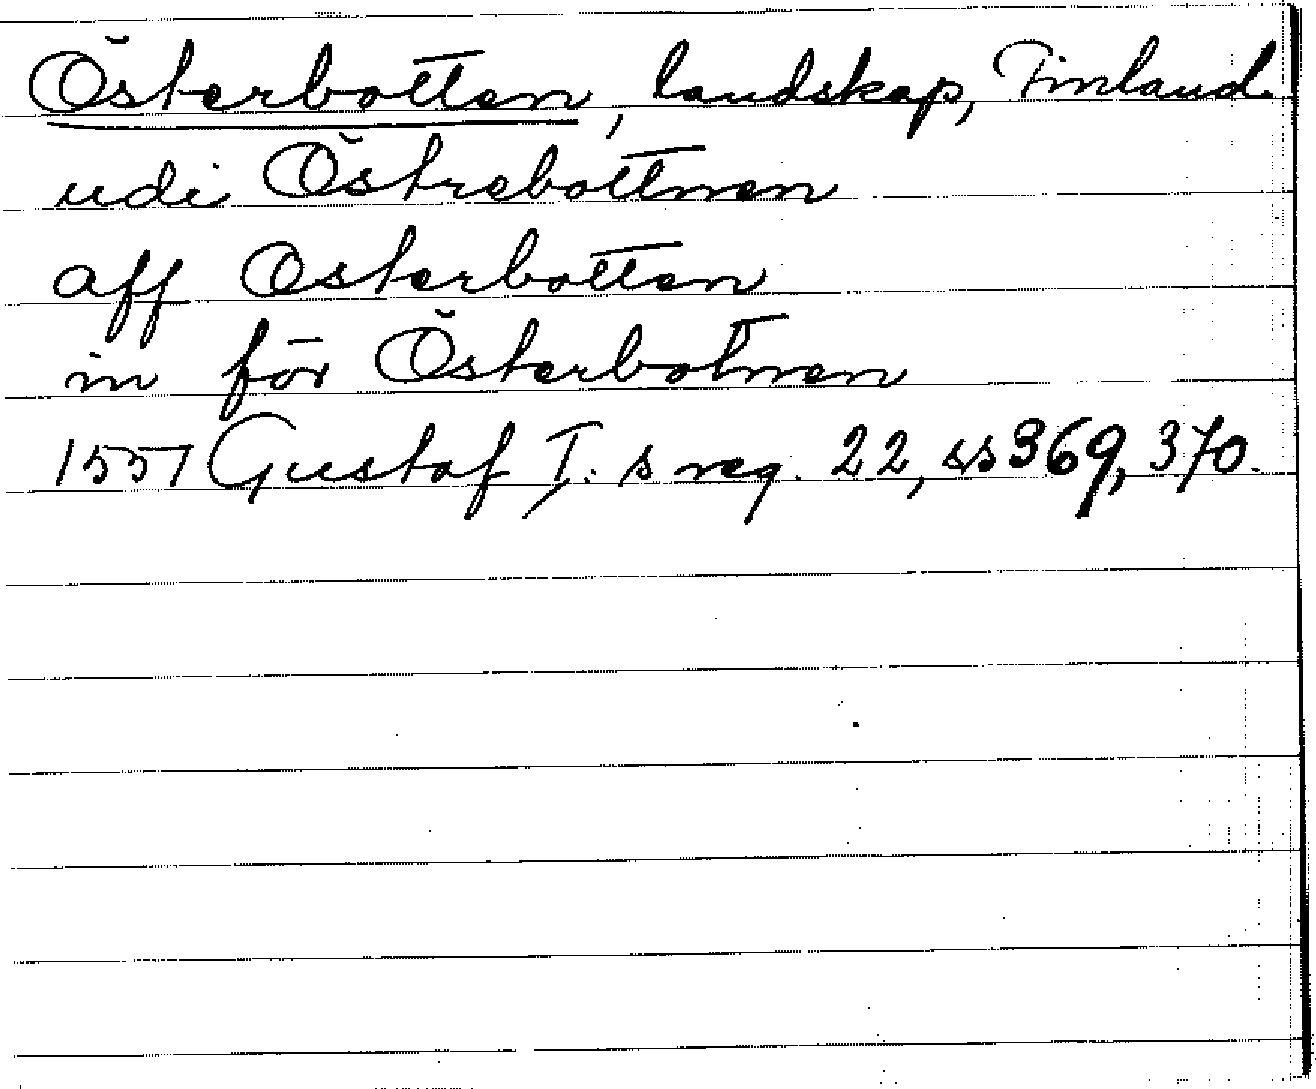 Österbotten, landskap, Finland.
udi Östrebottnen
aff Osterbotten
in för Österbotnen
1557 Gustaf I: s reg. 22, ss 369, 370.